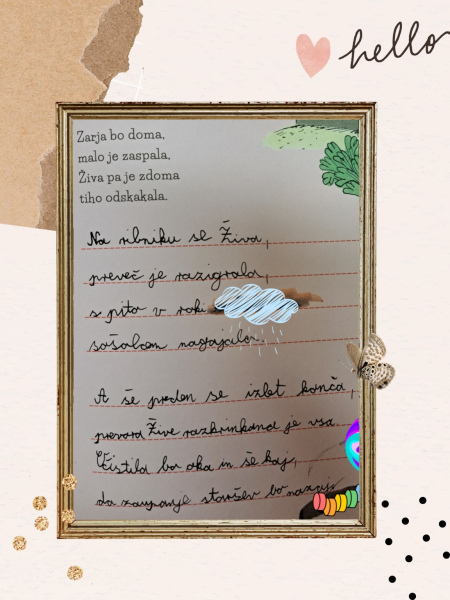 hello
Zarja bo doma,
malo je zaspala,
Živa pa je zdoma
tiho odskakala.
Na ribniku se Živa,
preveč je razigrala,
s pito v roki
sošolcem nagajala.
A še preden se izlet konča,
prevara Žive razkrinkana je vsa.
Čistila bo oka in še kaj,
da zaupanje staršev bo nazaj.